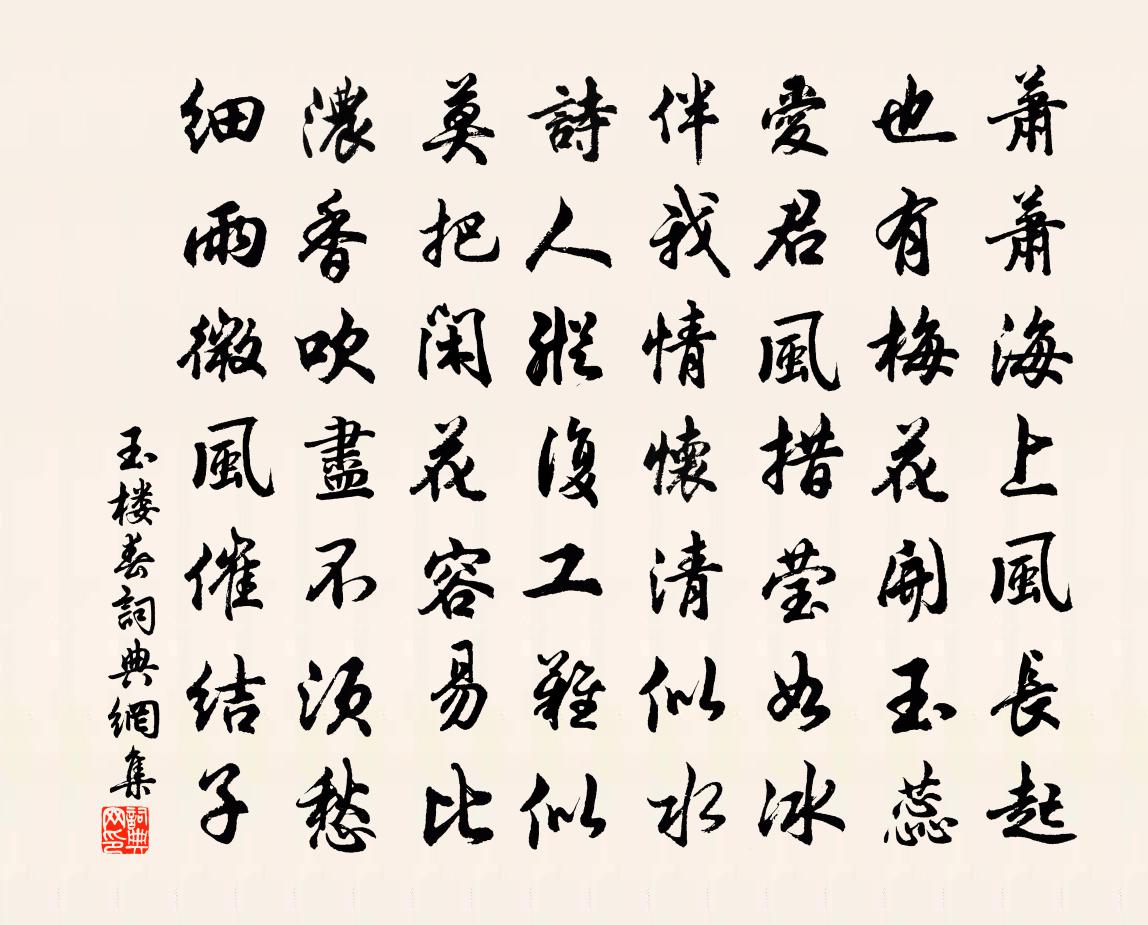 蕭蕭海上風長起
也有梅花開玉蕊
愛君風措瑩如冰
伴我情懷清似水
詩人縱復工難似
莫把閑花容易比
濃香吹盡不須愁
細雨微風催結子
玉楼春詞典網集
詞典網印